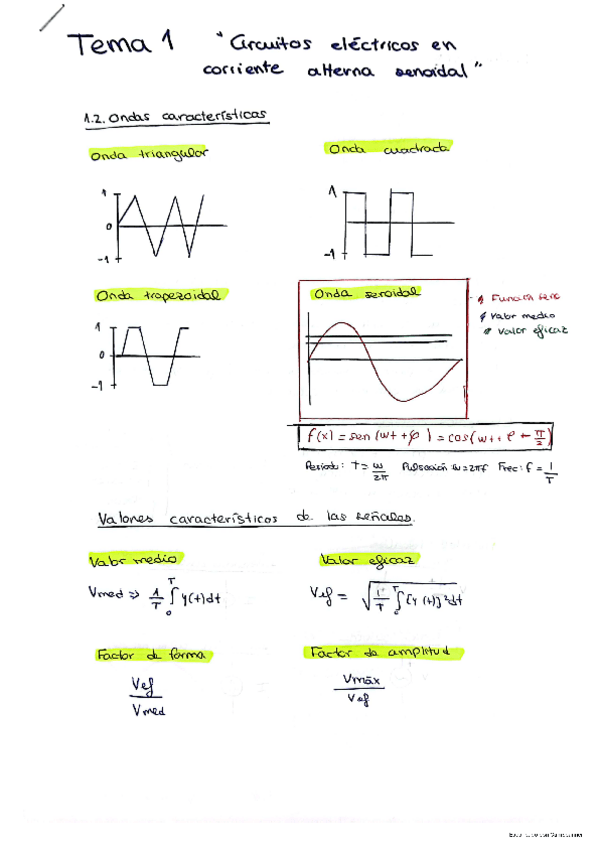 Tema 1 "Circuitos eléctricos en
corriente alterna senoidal"
1.2. Ondas características
Onda triangular
Onda cuadrada
1
0
-1
1
-1
Onda trapezoidal
Onda senoidal
Función seno
Valor medio
Valor eficaz
1
0
-1
f(x) = sen (wt + φ) = cos(wt + φ - π/2)
Periodo: T = w/2π Pulsación w = 2πf Frec: f = 1/T
Valores característicos de las señales.
Valor medio
Valor eficaz
Vmed => 1/T ∫₀ᵀ y(t)dt
Vef = √(1/T ∫₀ᵀ [y(t)]²dt)
Factor de forma
Factor de amplitud
Vef
Vmed
Vmáx
Vef